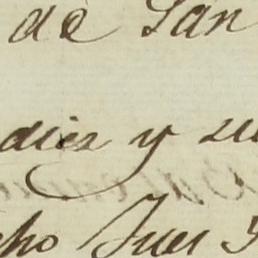 de San
diez y
cho Juez